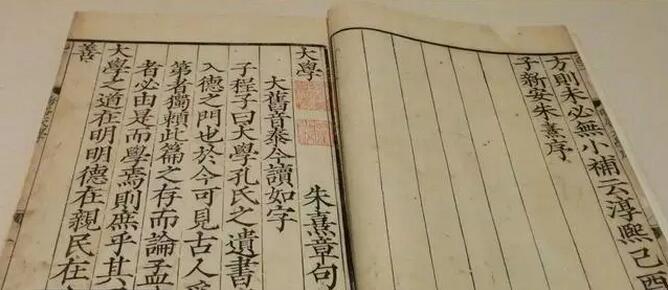 方則未必無小補云淳熙己酉
子新安朱熹序
大學
朱熹章句
大舊音泰今讀如字
子程子曰大學孔氏之遺書
入德之門也於今可見古人爲
第者獨賴此篇之存而論孟
者必由是而學焉則庶乎其
大學之道在明明德在親民在
善